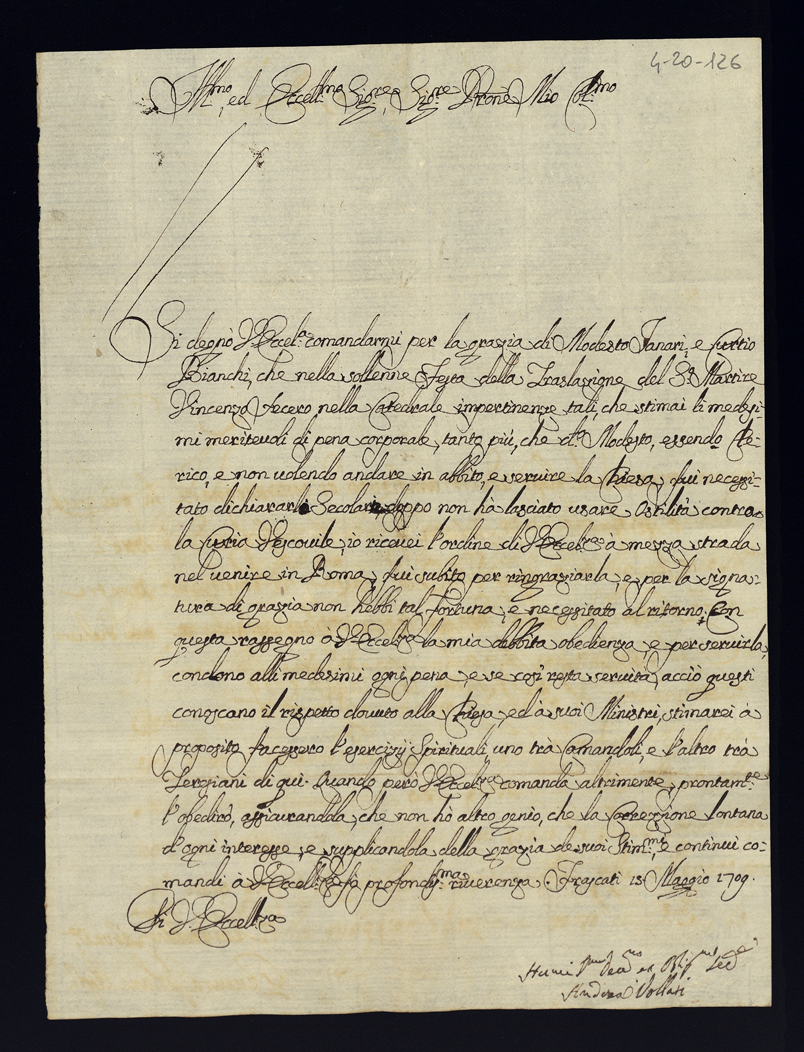 4-20-126
Ill.mo, ed Eccell.mo Sig.re, Sig.re Prone Mio Col.mo
Si degnò V. Eccel.a comandarmi per la grazia di Modesto Janari, e Curtio
Bianchi, che nella sollenne Festa della Traslazione del S. Martire
Vincenzo fecero nella Catedrale impertinenze tali, che stimai li medesi-
mi meriteuoli di pena corporale, tanto più, che d.o Modesto, essendo Che-
rico, e non uolendo andare in abbito, e seruire la Chiesa, fui necessi-
tato dichiararlo Secolare, doppo non hà lasciato usare Ostilità contro
la Curia Vescouile, io riceuei l'ordine di V. Eccel.za à mezza strada
nel uenire in Roma, fui subito per ringraziarla, e per la signa-
tura di grazia non hebbi tal fortuna, e necessitato al ritorno. Con
questa rassegno à V. Eccel.za la mia debbita obedienza, e per seruirla,
condono alli medesimi ogni pena, e se così resta seruita, acciò questi
conoscano il rispetto douuto alla Chiesa, ed à suoi Ministri, stimarei à
proposito facessero l'esercizij Spirituali uno trà Camandoli, e l'altro trà
Teresiani di quì. Quando però V. Eccel.za comanda altrimente, prontam.te
l'obedirò, assicurandola, che non hò altro genio, che la Correzzione lontana
d'ogni interesse, e supplicandola della grazia de suoi Stim.mi, e continui co-
mandi à V. Eccell.za fò profondiss.ma riuerenza. Frascati 15 Maggio 1709.
Di V. Eccell.za
Andrea